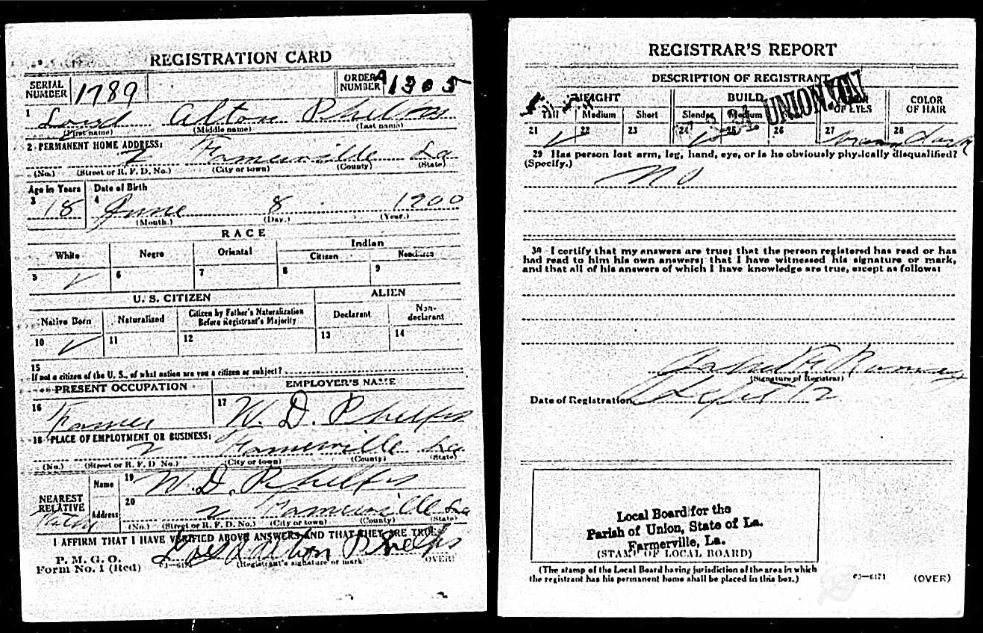 REGISTRATION CARD
SERIAL NUMBER 1789 ORDER NUMBER A1305
1 Loyd Alton Phelps
(First name) (Middle name) (Last name)
2 PERMANENT HOME ADDRESS:
2 Farmerville La
(No.) (Street or R. F. D. No.) (City or town) (County) (State)
Age in Years Date of Birth
3 18 4 June 8 1900
(Month.) (Day.) (Year.)
RACE
White Negro Oriental Indian
Citizen Noncitizen
5 ✓ 6 7 8 9
U. S. CITIZEN ALIEN
Native Born Naturalized Citizen by Father's Naturalization Before Registrant's Majority Declarant Non-declarant
10 ✓ 11 12 13 14
15
If not a citizen of the U. S., of what nation are you a citizen or subject?
PRESENT OCCUPATION EMPLOYER'S NAME
16 Farmer 17 W. D. Phelps
18 PLACE OF EMPLOYMENT OR BUSINESS:
2 Farmerville La
(No.) (Street or R. F. D. No.) (City or town) (County) (State)
NEAREST RELATIVE Name 19 W. D. Phelps
Address 20 2 Farmerville La
(No.) (Street or R. F. D. No.) (City or town) (County) (State)
I AFFIRM THAT I HAVE VERIFIED ABOVE ANSWERS AND THAT THEY ARE TRUE
P. M. G. O.
Form No. 1 (Red) Loyd Alton Phelps
(Registrant's signature or mark) (OVER)
REGISTRAR'S REPORT
DESCRIPTION OF REGISTRANT
HEIGHT BUILD COLOR OF EYES COLOR OF HAIR
Tall Medium Short Slender Medium
21 ✓ 22 23 24 25 26 27 28 Dark
UNION
29 Has person lost arm, leg, hand, eye, or is he obviously physically disqualified?
(Specify.) No
30 I certify that my answers are true; that the person registered has read or has
had read to him his own answers; that I have witnessed his signature or mark,
and that all of his answers of which I have knowledge are true, except as follows:
(Signature of Registrar)
Date of Registration Sept 12
Local Board for the
Parish of Union, State of La.
Farmerville, La.
(STAMP OF LOCAL BOARD)
(The stamp of the Local Board having jurisdiction of the area in which
the registrant has his permanent home shall be placed in this box.)
03—6171 (OVER)